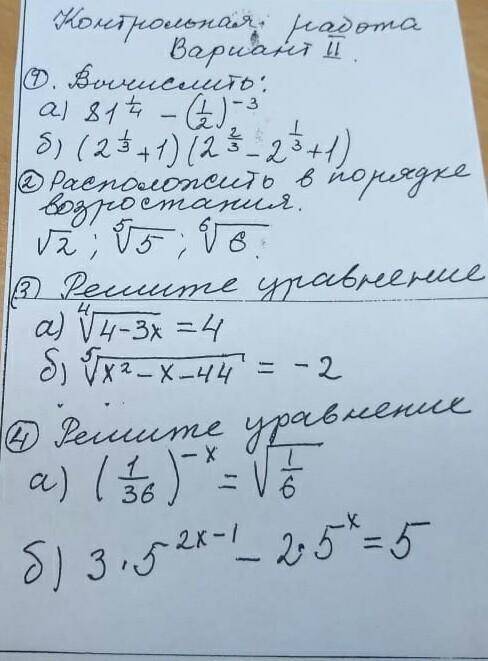 Контрольная работа
Вариант II.
① . Вычислить:
а) 81^{1/4} - (1/2)^{-3}
б) (2^{1/3}+1)(2^{2/3}-2^{1/3}+1)
② Расположить в порядке
возростания.
√2 ; ⁵√5 ; ⁶√6.
③ Решите уравнение
а) ⁴√(4-3x) = 4
б) ⁵√(x²-x-44) = -2
④ Решите уравнение
а) (1/36)^{-x} = √(1/6)
б) 3·5^{2x-1} - 2·5^{x} = 5